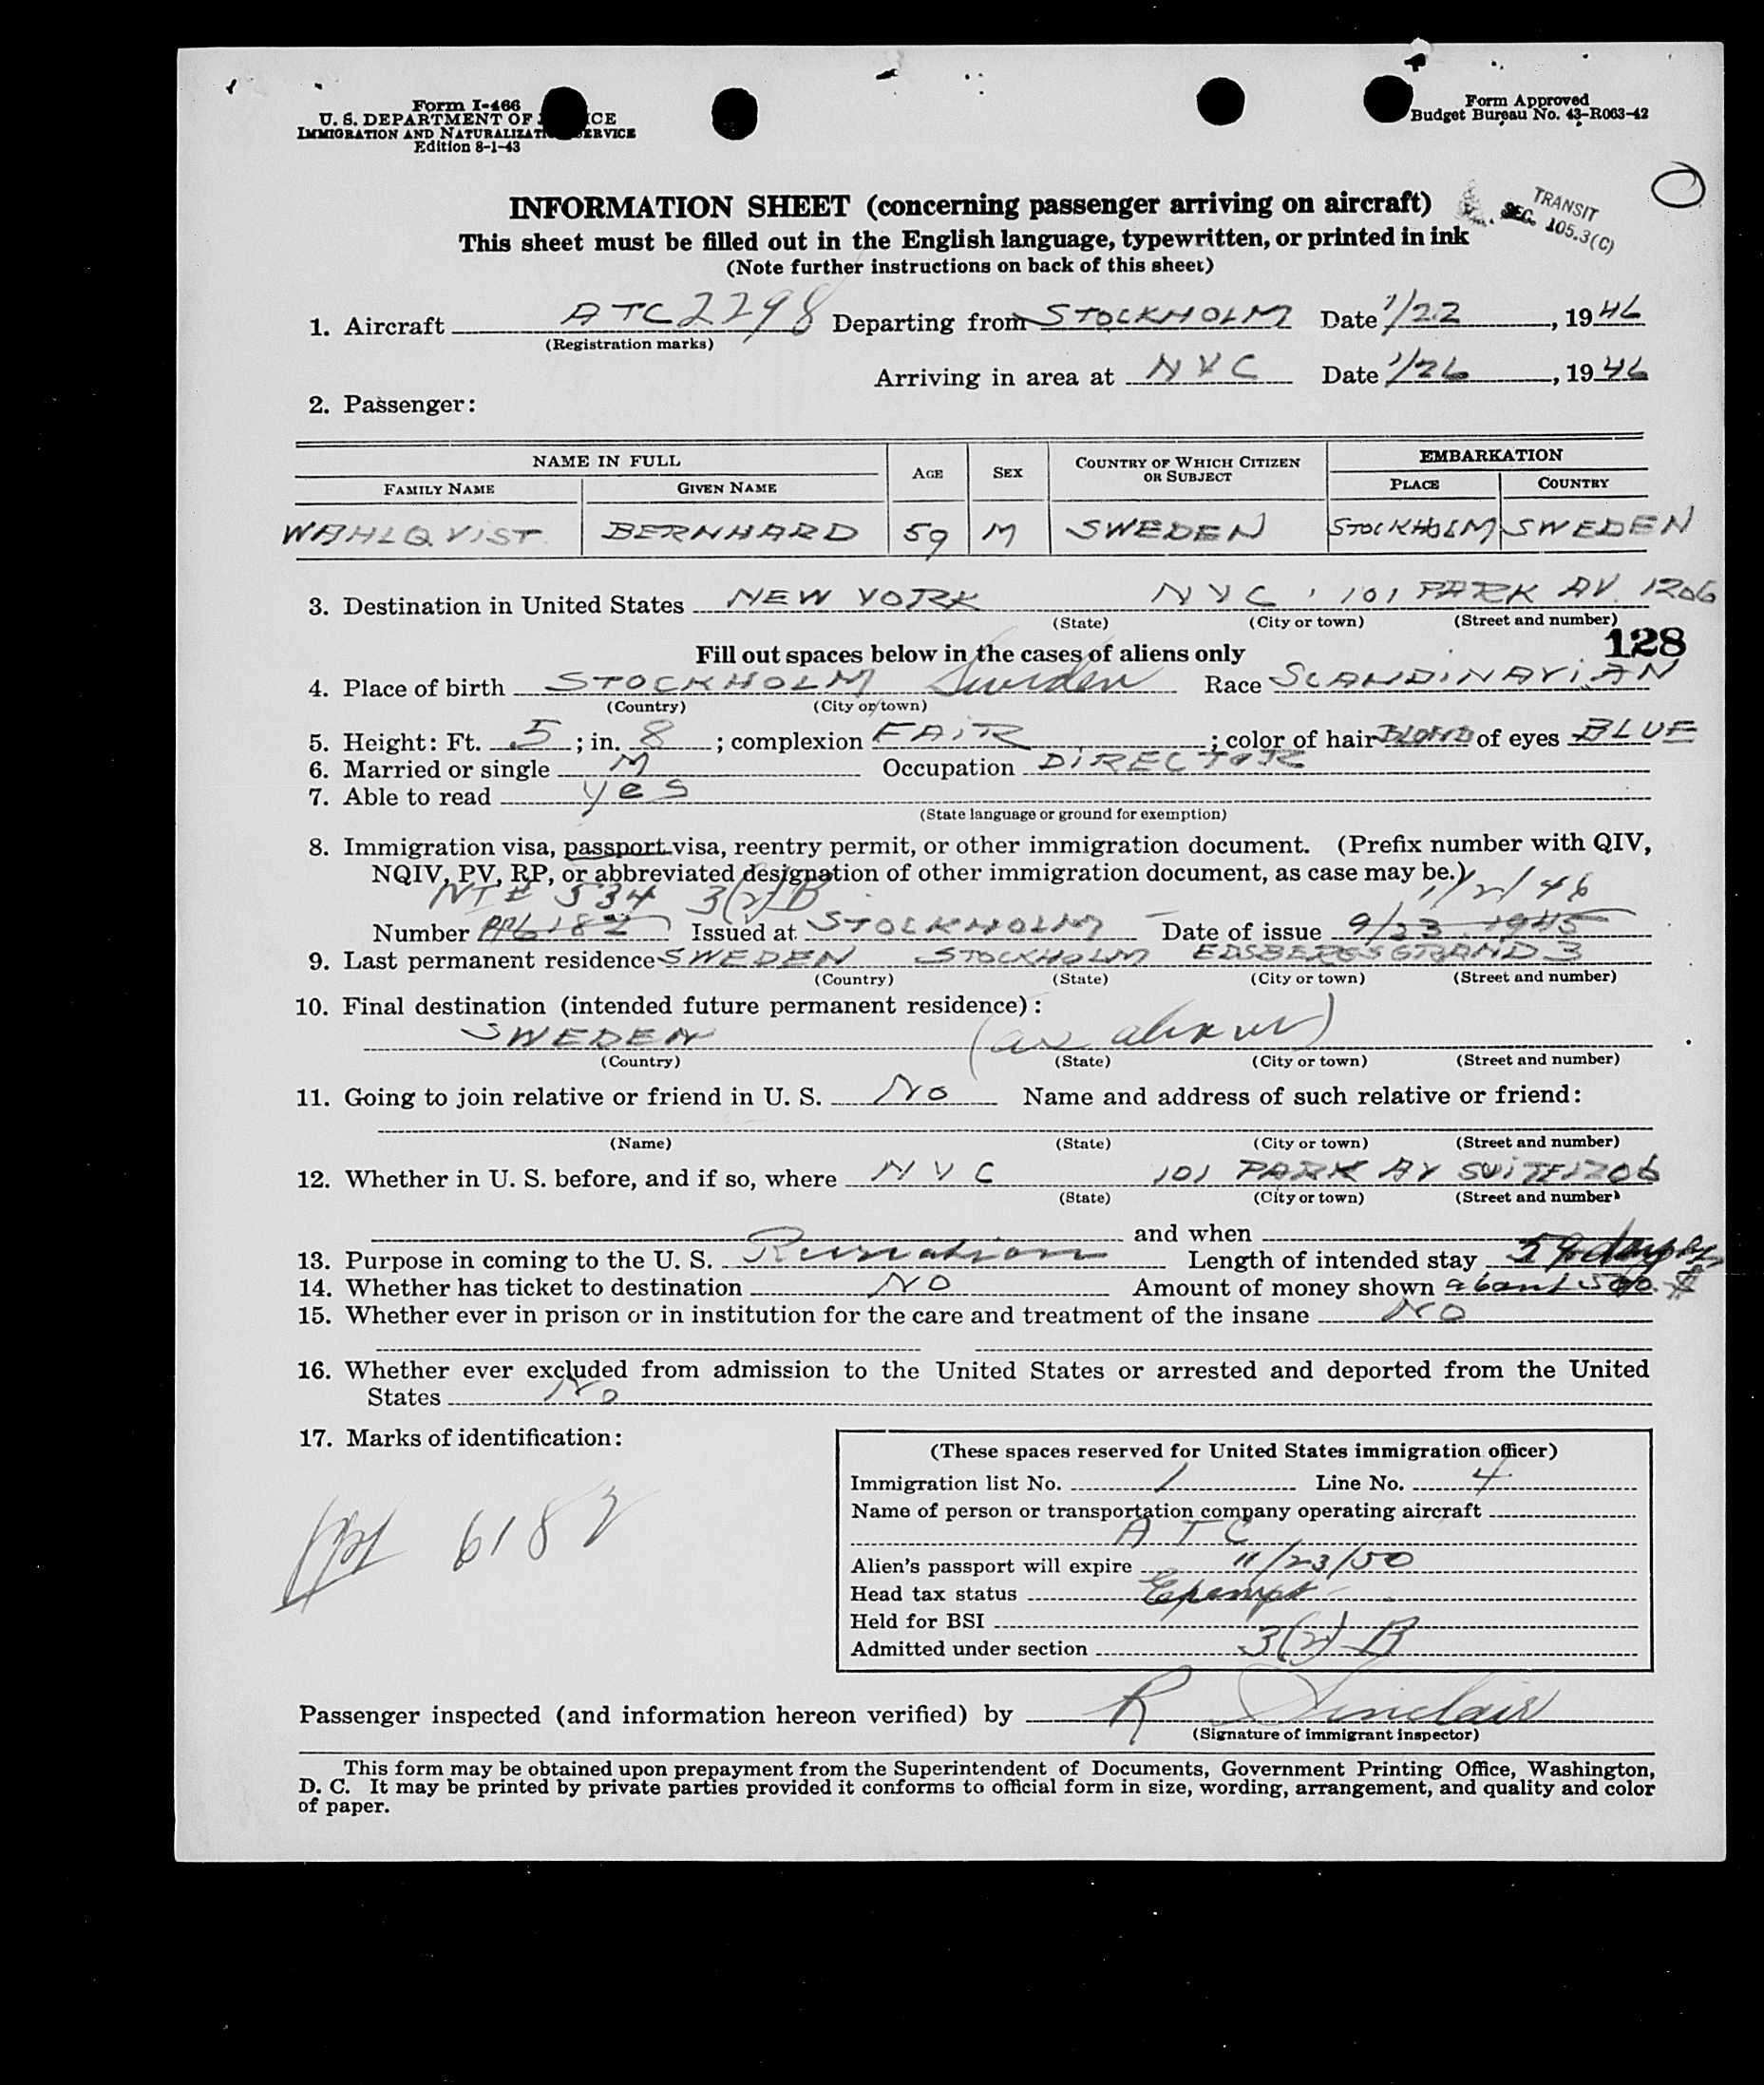 Form I-466
U. S. DEPARTMENT OF CE
IMMIGRATION AND NATURALIZAT ERVICE
Edition 8-1-43
Form Approved
Budget Bureau No. 43-R063-42
INFORMATION SHEET (concerning passenger arriving on aircraft)
TRANSIT
SEC. 105.3(C)
This sheet must be filled out in the English language, typewritten, or printed in ink
(Note further instructions on back of this sheet)
1. Aircraft ATC 2298 Departing from STOCKHOLM Date 1/22, 1946
(Registration marks)
Arriving in area at NYC Date 1/26, 1946
2. Passenger:
NAME IN FULL AGE SEX COUNTRY OF WHICH CITIZEN OR SUBJECT EMBARKATION
FAMILY NAME GIVEN NAME PLACE COUNTRY
WAHLQVIST BERNHARD 59 M SWEDEN STOCKHOLM SWEDEN
3. Destination in United States NEW YORK NYC, 101 PARK AV. 1206
(State) (City or town) (Street and number)
128
Fill out spaces below in the cases of aliens only
4. Place of birth STOCKHOLM Sweden Race SCANDINAVIAN
(Country) (City or town)
5. Height: Ft. 5; in. 8; complexion FAIR; color of hair BLOND of eyes BLUE
6. Married or single M Occupation DIRECTOR
7. Able to read yes
(State language or ground for exemption)
8. Immigration visa, passport visa, reentry permit, or other immigration document. (Prefix number with QIV,
NQIV, PV, RP, or abbreviated designation of other immigration document, as case may be.)
NI# 534 3(2)B 1/2/46
Number 6182 Issued at STOCKHOLM Date of issue 9/23 1945
9. Last permanent residence SWEDEN STOCKHOLM EDSBERGSGRAND 3
(Country) (State) (City or town) (Street and number)
10. Final destination (intended future permanent residence):
SWEDEN (as above)
(Country) (State) (City or town) (Street and number)
11. Going to join relative or friend in U. S. No Name and address of such relative or friend:
(Name) (State) (City or town) (Street and number)
12. Whether in U. S. before, and if so, where NYC 101 PARK AV SUITE 1206
(State) (City or town) (Street and number)
and when
13. Purpose in coming to the U. S. Length of intended stay
14. Whether has ticket to destination NO Amount of money shown about 500 $
15. Whether ever in prison or in institution for the care and treatment of the insane NO
16. Whether ever excluded from admission to the United States or arrested and deported from the United
States No
17. Marks of identification:
6182
(These spaces reserved for United States immigration officer)
Immigration list No. 1 Line No. 4
Name of person or transportation company operating aircraft
ATC
Alien's passport will expire 11/23/50
Head tax status Exempt
Held for BSI
Admitted under section 3(2) B
Passenger inspected (and information hereon verified) by R Sinclair
(Signature of immigrant inspector)
This form may be obtained upon prepayment from the Superintendent of Documents, Government Printing Office, Washington,
D. C. It may be printed by private parties provided it conforms to official form in size, wording, arrangement, and quality and color
of paper.